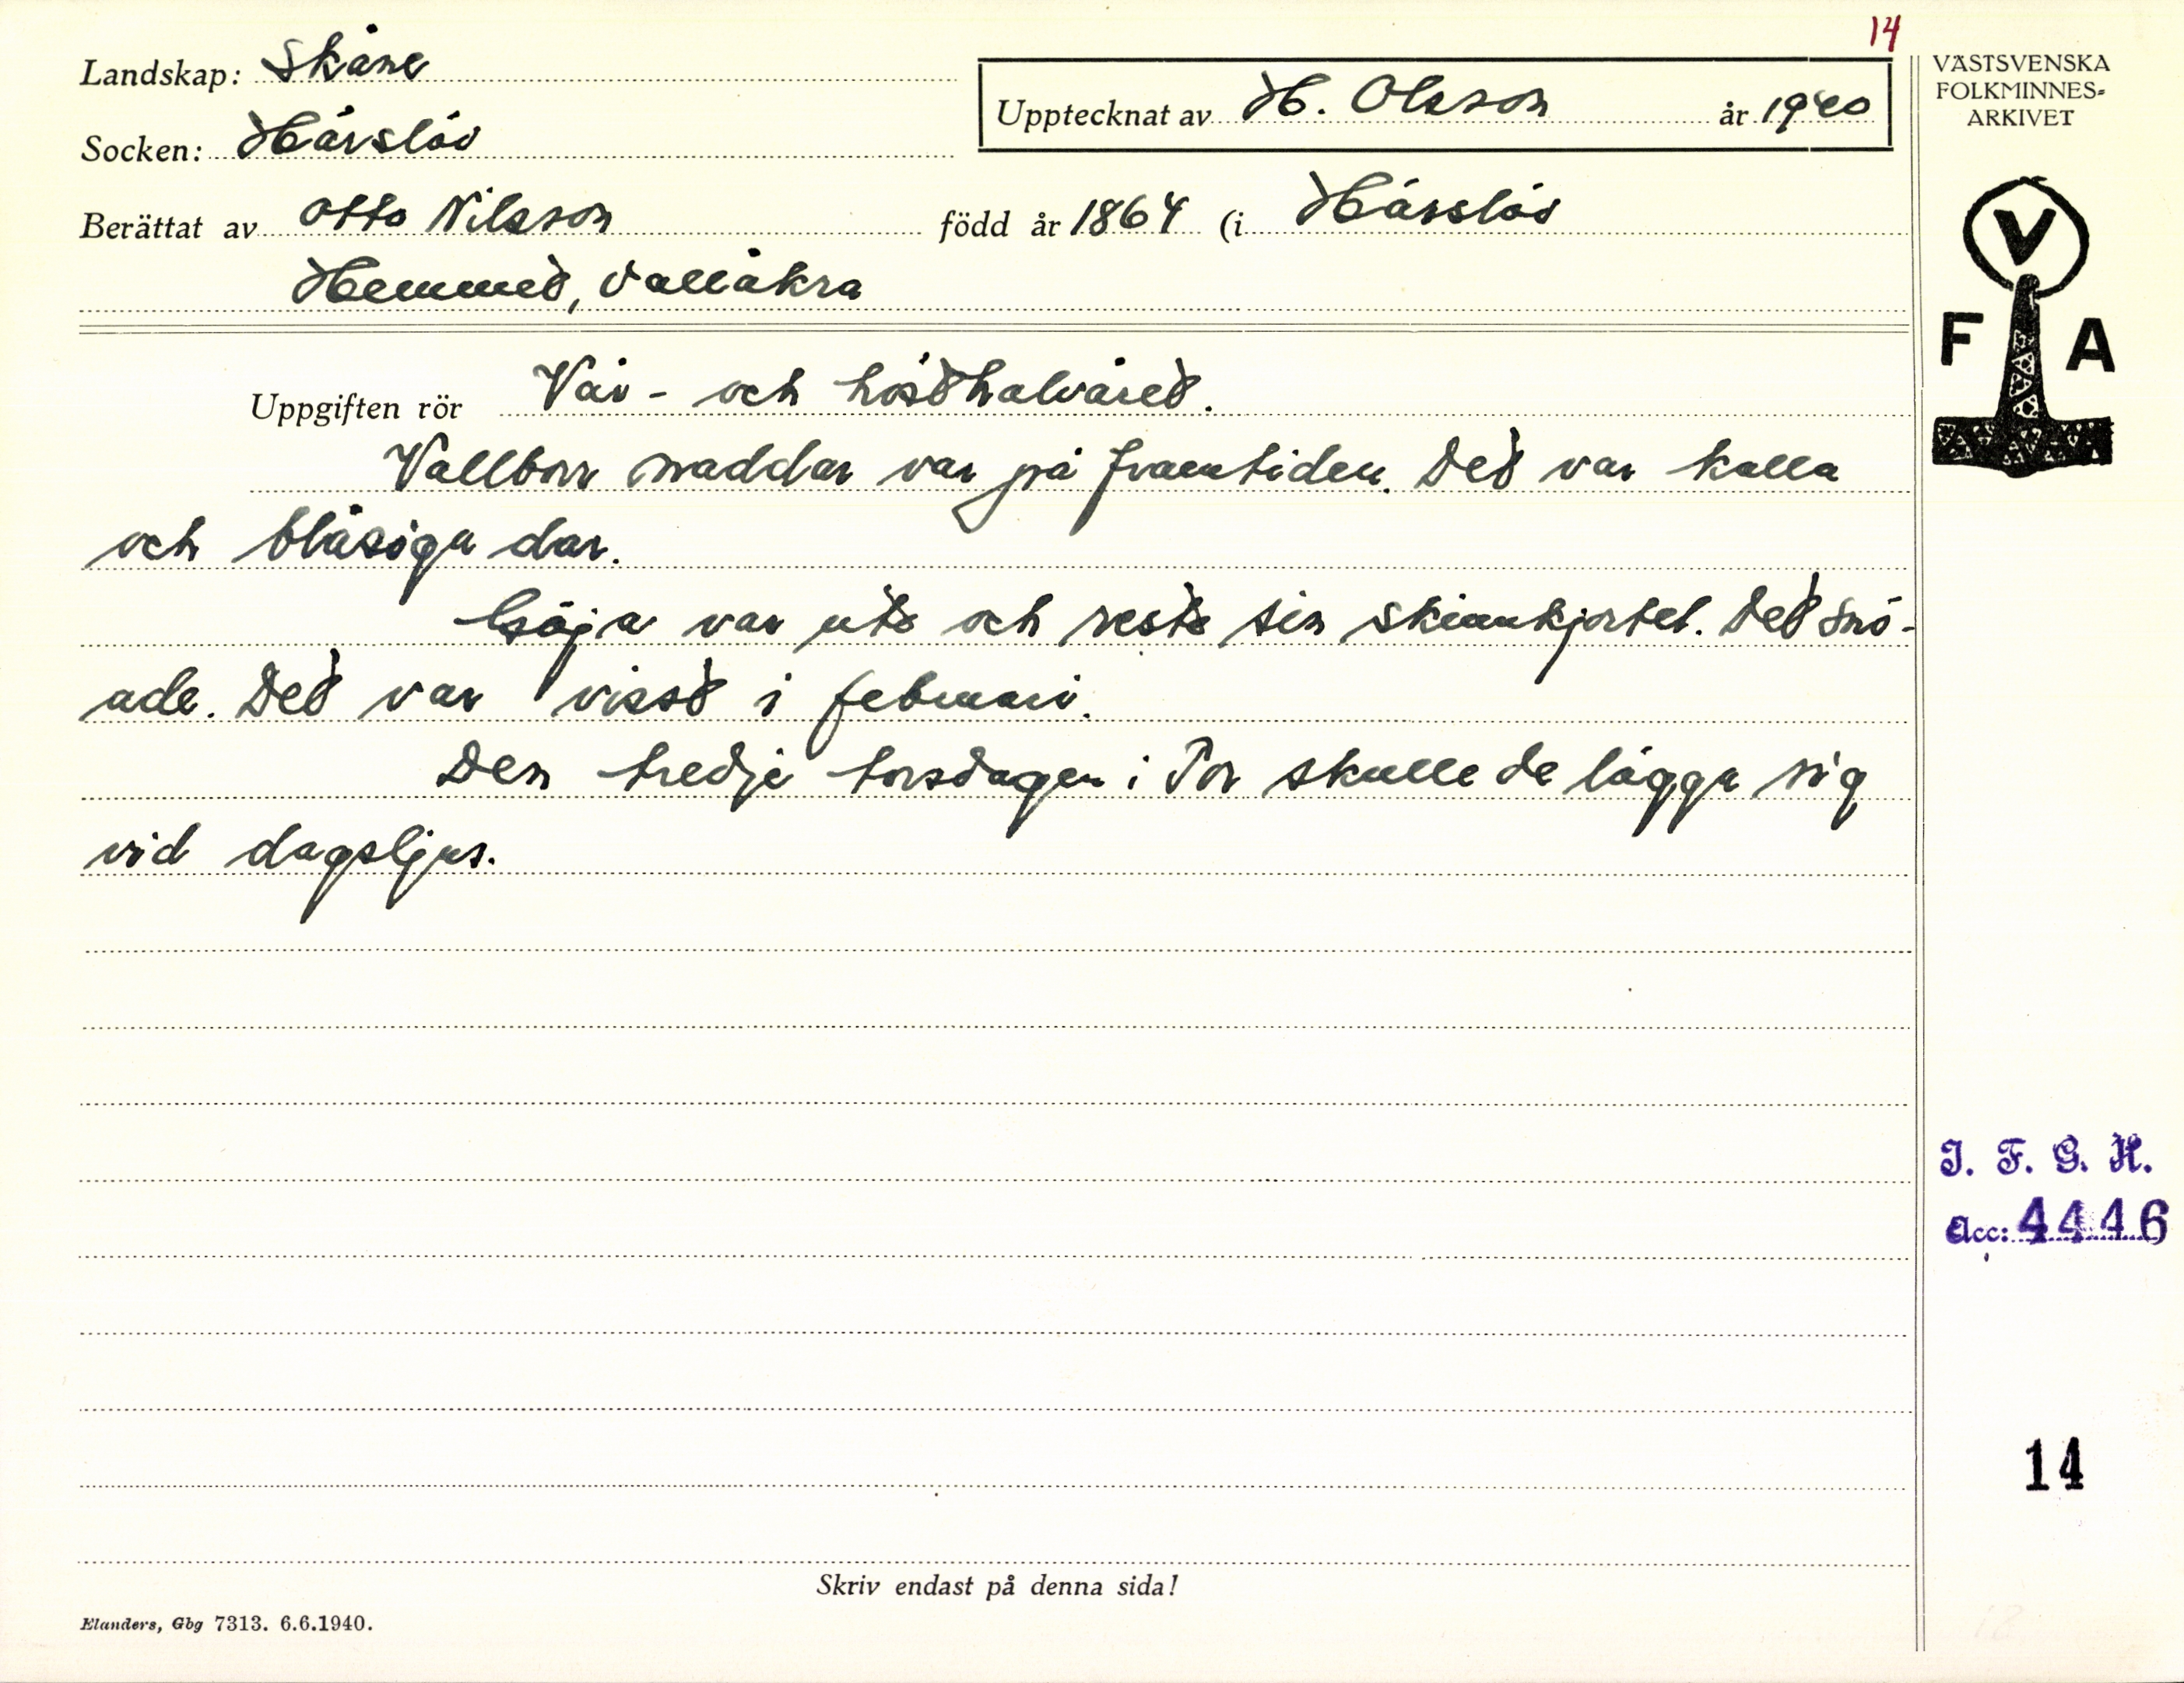 14
Landskap: Skåne
Upptecknat av H. Olsson år 1940
VÄSTSVENSKA
FOLKMINNES-
ARKIVET
Socken: Härslöv
Berättat av Otto Nilsson född år 1864 (i Härslöv
Hemmet, Vallåkra
V
F A
Uppgiften rör Vår- och hösthalvåret.
Vallborr naddar var på framtiden. Det var kalla
och blåsiga dar.
Göja var ute och reste sin skinnkjortel. Det snö-
ade. Det var visst i februari.
Den tredje torsdagen i Tor skulle de lägga sig
vid dagsljus.
I. F. G. H.
Acc: 4446
14
Skriv endast på denna sida!
Elanders, Gbg 7313. 6.6.1940.